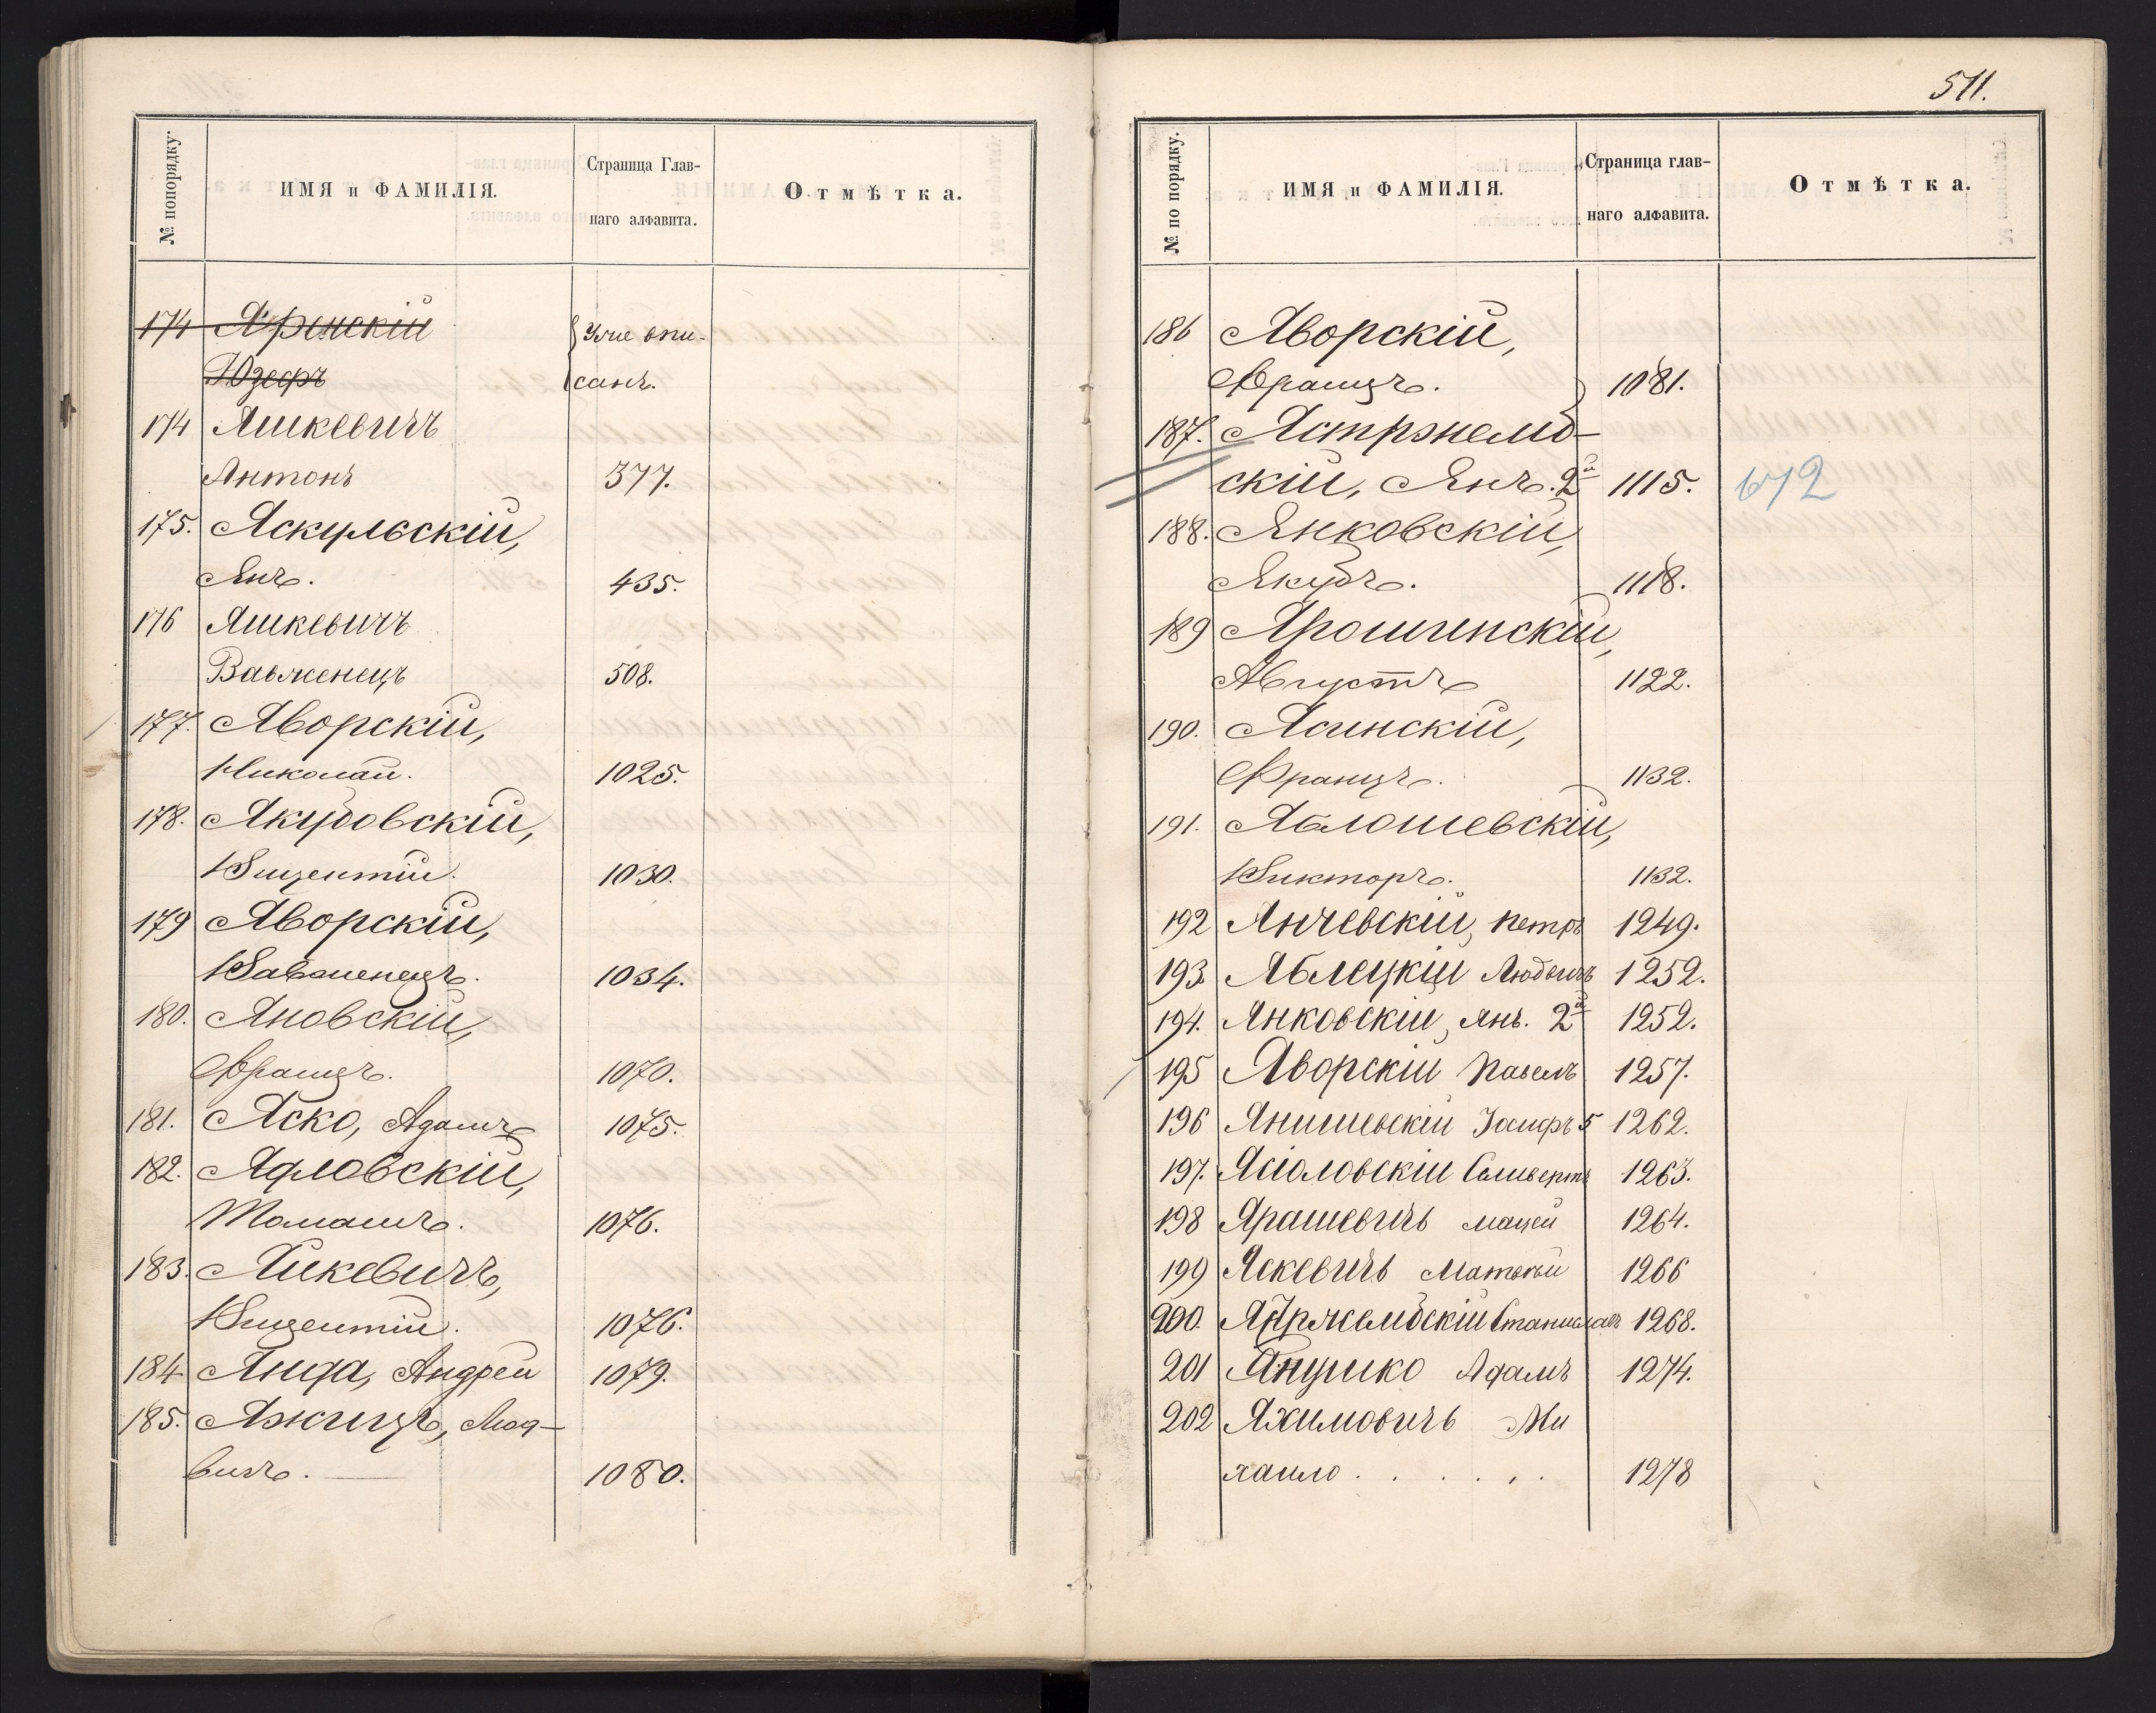 № попорядку.
ИМЯ и ФАМИЛІЯ.
Страница Глав-
наго алфавита.
Отмѣтка.
174 Яренскій
Юзефъ
уже впи-
санъ.
174 Яшкевичъ
Антонъ 377.
175. Яскульскій,
Янъ. 435.
176 Яшкевичъ
Вавженецъ 508.
177. Яворскій,
Николай. 1025.
178. Якубовскій,
Викентій. 1030.
179 Яворскій,
Вавженецъ. 1034.
180. Яновскій,
Францъ. 1070.
181. Яско, Адамъ 1075.
182. Ядловскій,
Томашъ. 1076.
183. Яцкевичъ,
Винцентій. 1076.
184 Янда, Андрей 1079.
185. Яжицъ, Люд-
вигъ. 1080.
511.
№ по порядку.
ИМЯ и ФАМИЛІЯ.
Страница глав-
наго алфавита.
Отмѣтка.
186 Яворскій,
Францъ. 1081.
187. Ястржемб-
скій, Янъ. 2й 1115. 672
188. Янковскій,
Якубъ. 1118.
189 Ярошинскій,
Августъ 1122.
190. Ясинскій,
Францъ. 1132.
191. Яблошевскій,
Викторъ. 1132.
192 Янчевскій, Петръ 1249.
193. Яблецкій Людвигъ 1252.
194. Янковскій, Янъ. 2й 1252.
195 Яворскій Павелъ 1257.
196 Янишевскій Іосифъ 5 1262.
197. Ясіоловскій 1263.
198 Ярашевичъ Мацей 1264.
199 Яскевичъ Матвѣй 1266
200. Станиславъ 1268.
201 Янушко Адамъ 1274.
202 Яхимовичъ Ми
хайло . . . . . . 1278